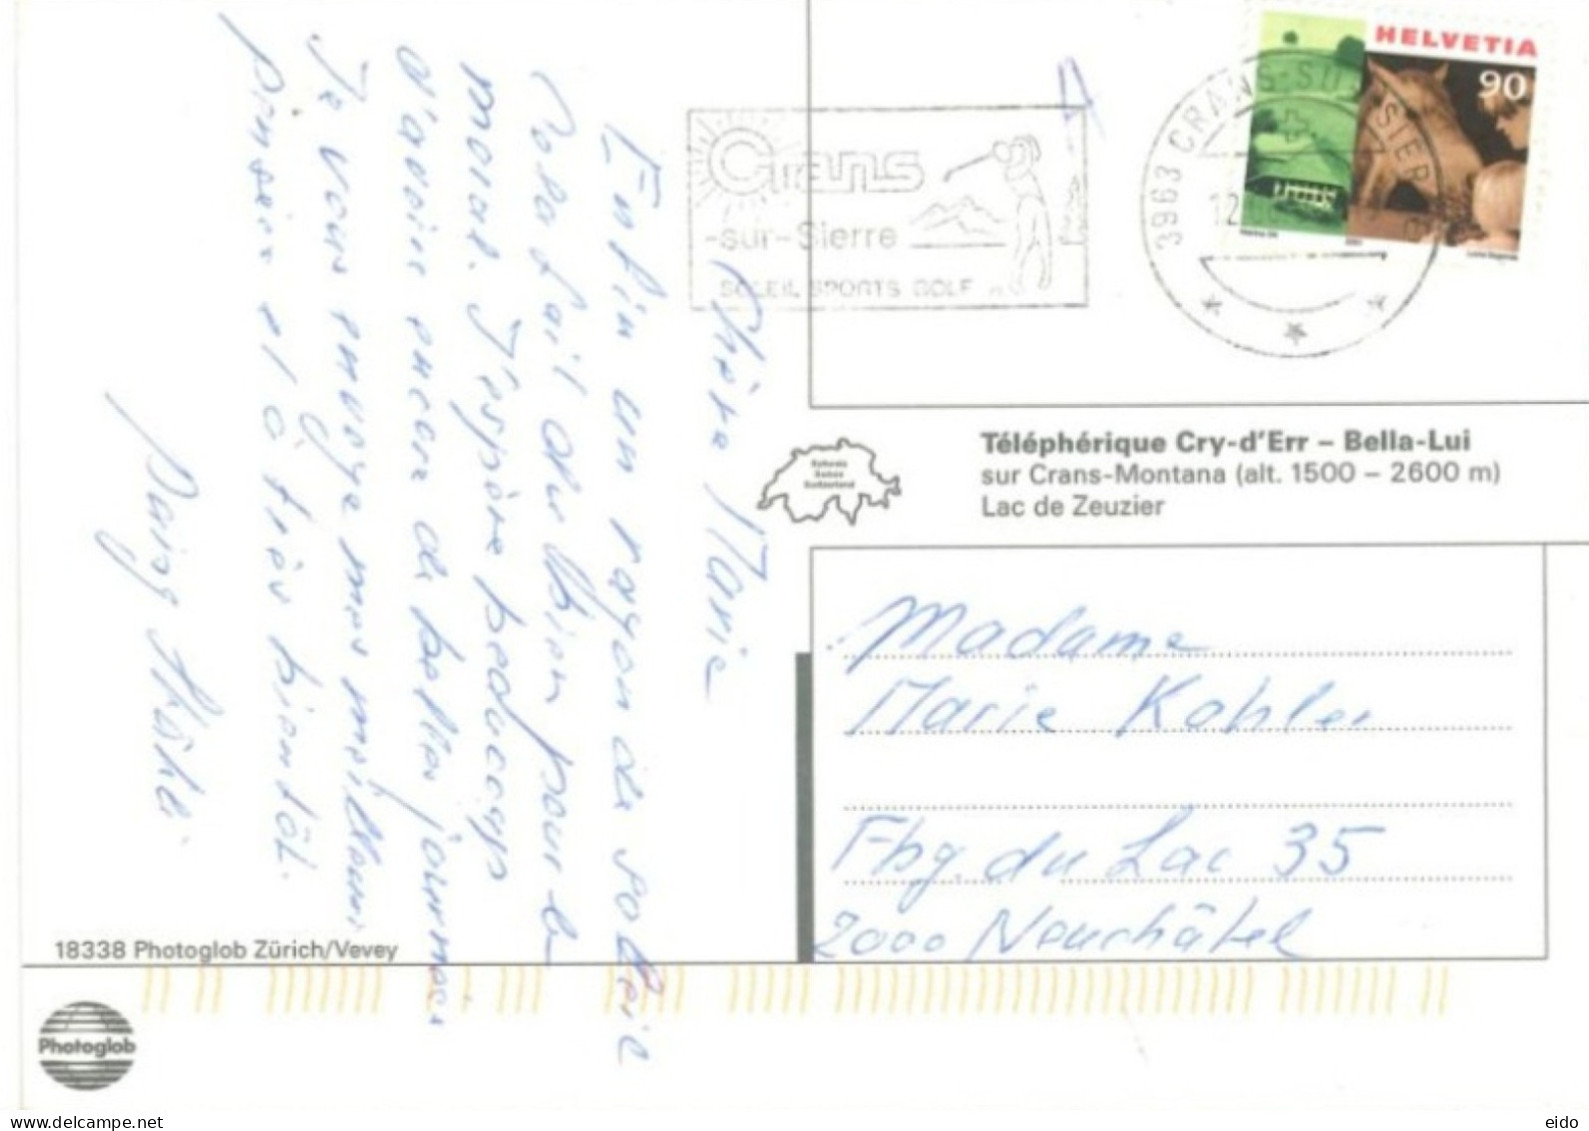 HELVETIA
90
3963 CRANS-SUR-SIERRE
12
Crans
-sur-Sierre
SOLEIL SPORTS GOLF
Chère Marie
Enfin un rayon de soleil
Cela fait du bien pour le
moral. J'espère beaucoup
d'avoir encore de belles journées
Je vous envoye mes meilleures
pensées et à très bientôt.
Téléphérique Cry-d'Err – Bella-Lui
sur Crans-Montana (alt. 1500 – 2600 m)
Lac de Zeuzier
Schweiz
Suisse
Switzerland
Madame
Marie Kohler
Fbg. du Lac 35
2000 Neuchâtel
18338 Photoglob Zürich/Vevey
Photoglob
www.delcampe.net
eido